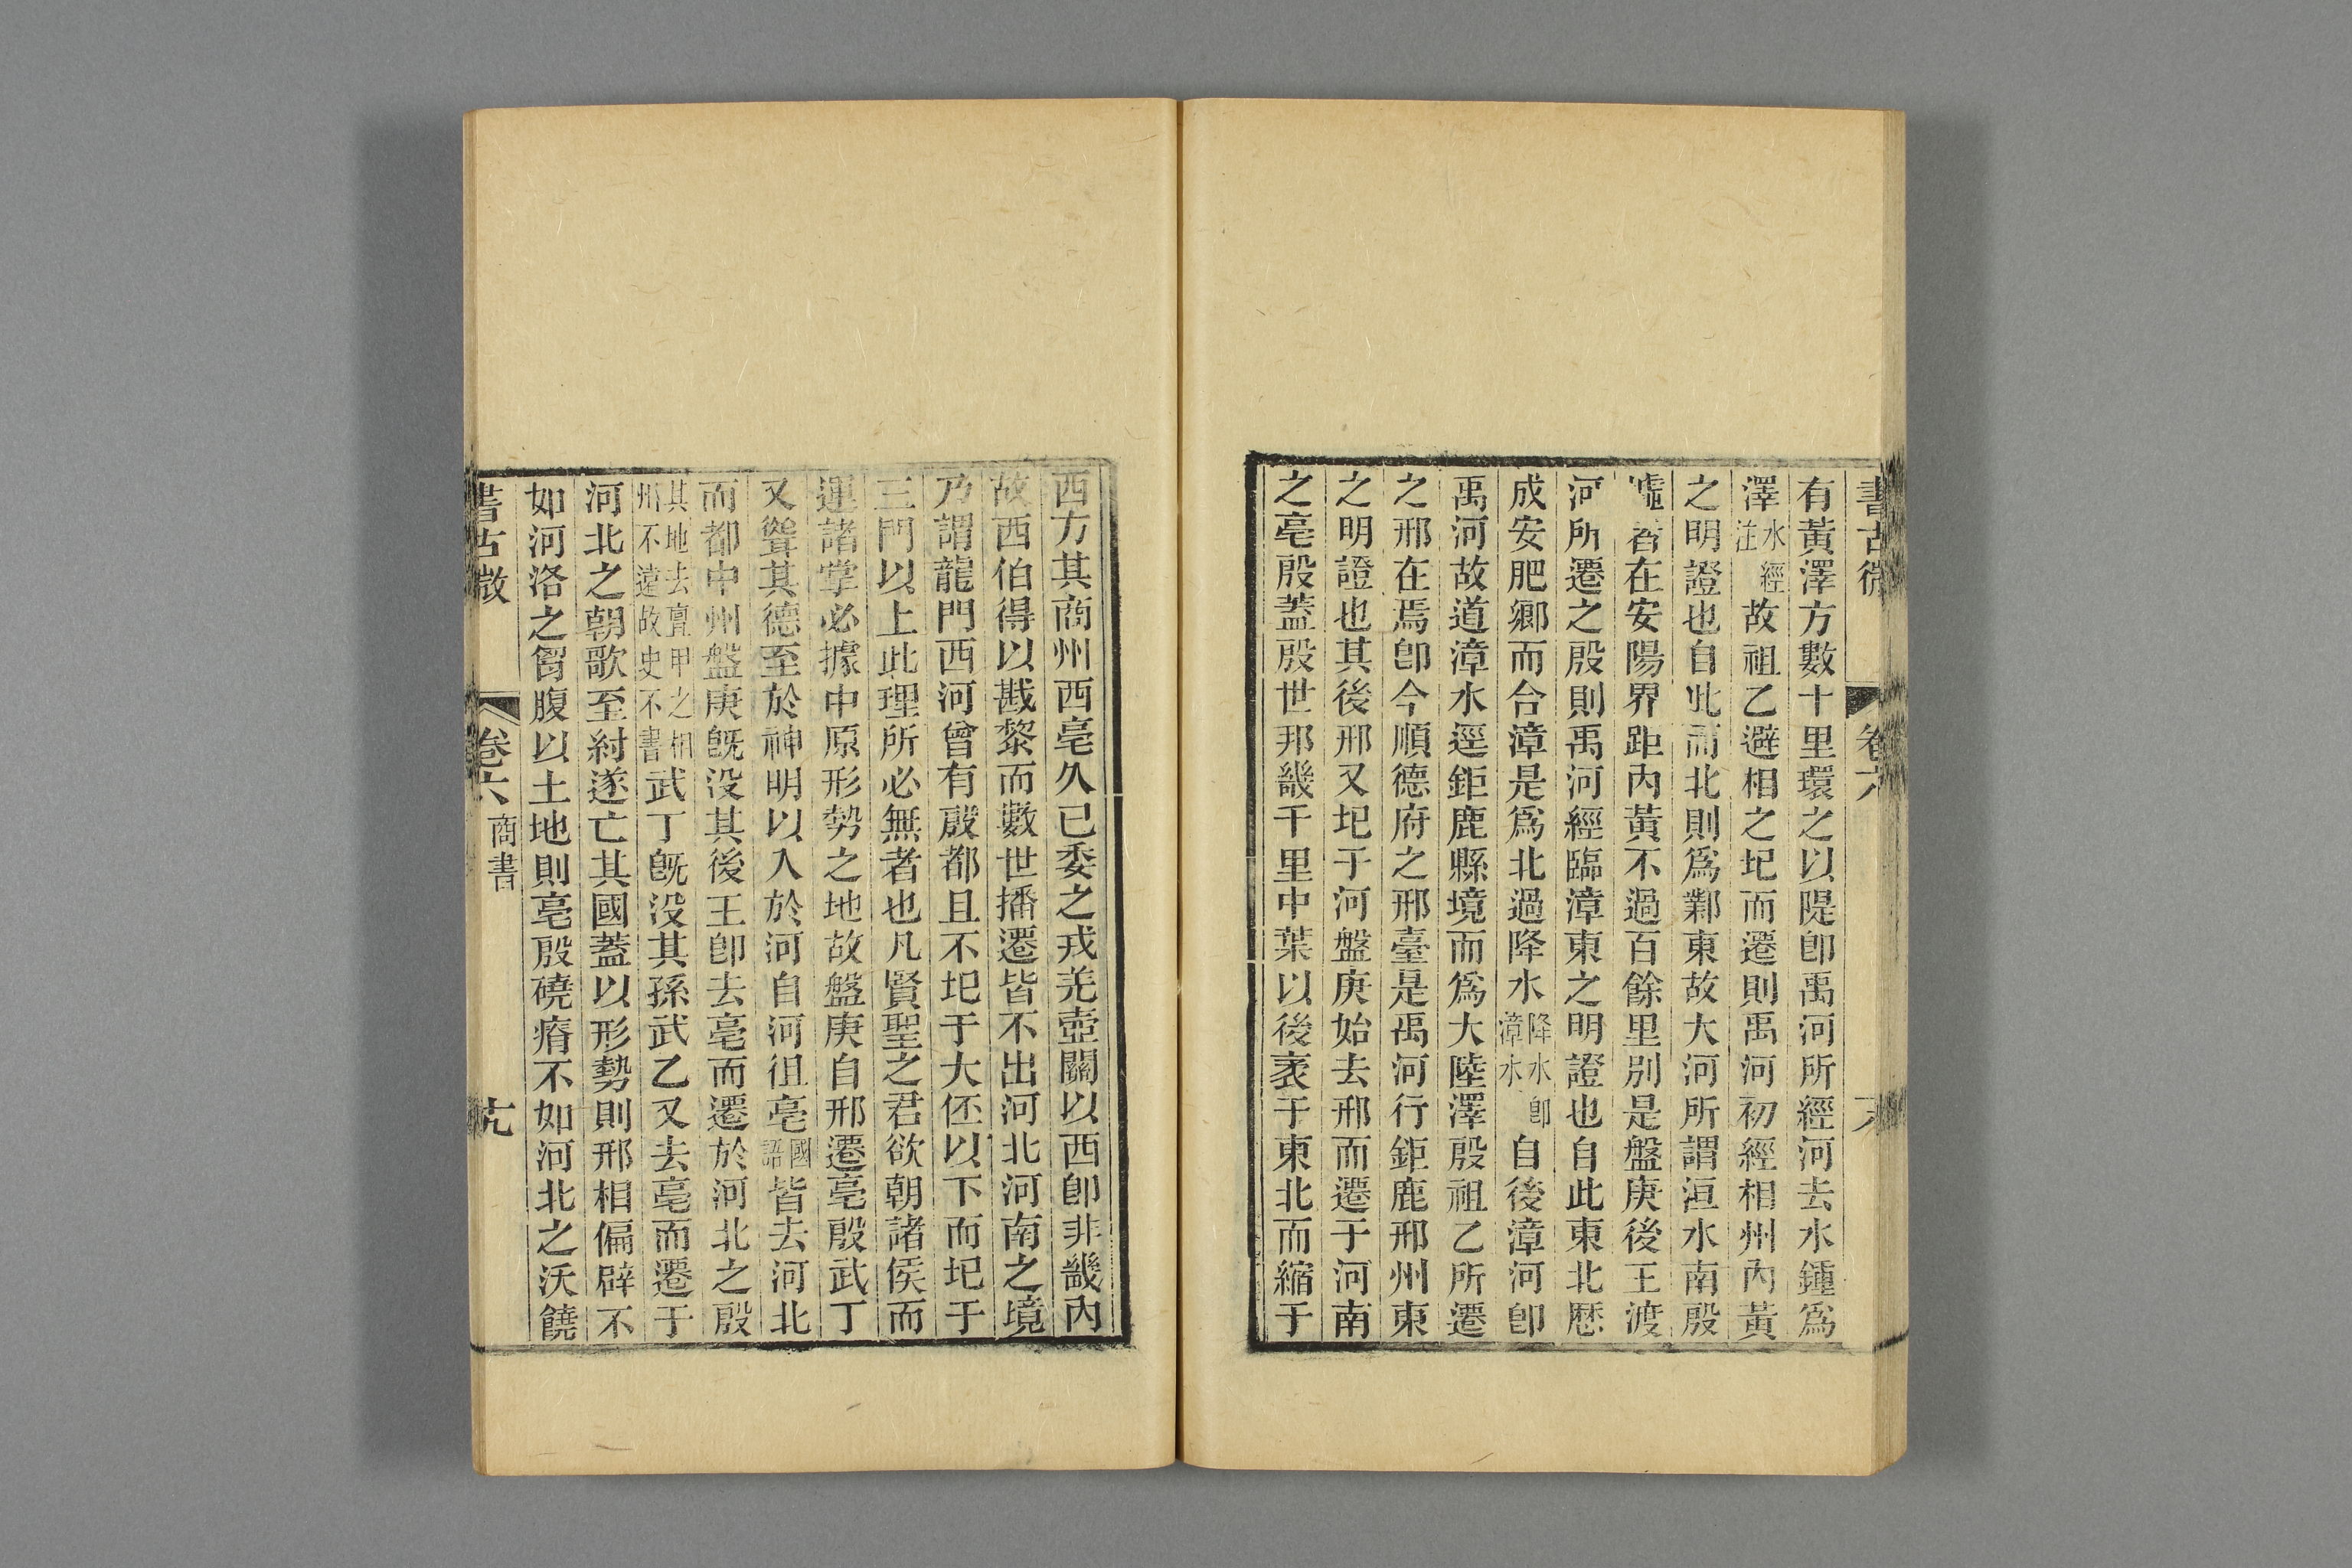 書古微
卷六
有黃澤方數十里環之以隄卽禹河所經河去水鍾爲
澤水經注故祖乙避相之圯而遷則禹河初經相州內黃
之明證也自此而北則爲鄴東故大河所謂洹水南殷
墟者在安陽界距內黃不過百餘里別是盤庚後王渡
河所遷之殷則禹河經臨漳東之明證也自此東北歷
成安肥鄉而合漳是爲北過降水降水卽漳水自後漳河卽
禹河故道漳水逕鉅鹿縣境而爲大陸澤殷祖乙所遷
之邢在焉卽今順德府之邢臺是禹河行鉅鹿邢州東
之明證也其後邢又圯于河盤庚始去邢而遷于河南
之亳殷蓋殷世邦畿千里中葉以後袤于東北而縮于
西方其商州西亳久已委之戎羌壺關以西卽非畿內
故西伯得以戡黎而數世播遷皆不出河北河南之境
乃謂龍門西河曾有殷都且不圯于大伾以下而圯于
三門以上此理所必無者也凡賢聖之君欲朝諸侯而
運諸掌必據中原形勢之地故盤庚自邢遷亳殷武丁
又聳其德至於神明以入於河自河徂亳國語皆去河北
而都中州盤庚旣没其後王卽去亳而遷於河北之殷
其地去亶甲之相州不遠故史不書武丁旣没其孫武乙又去亳而遷于
河北之朝歌至紂遂亡其國蓋以形勢則邢相偏辟不
如河洛之胷腹以土地則亳殷磽瘠不如河北之沃饒
書古微
卷六
商書